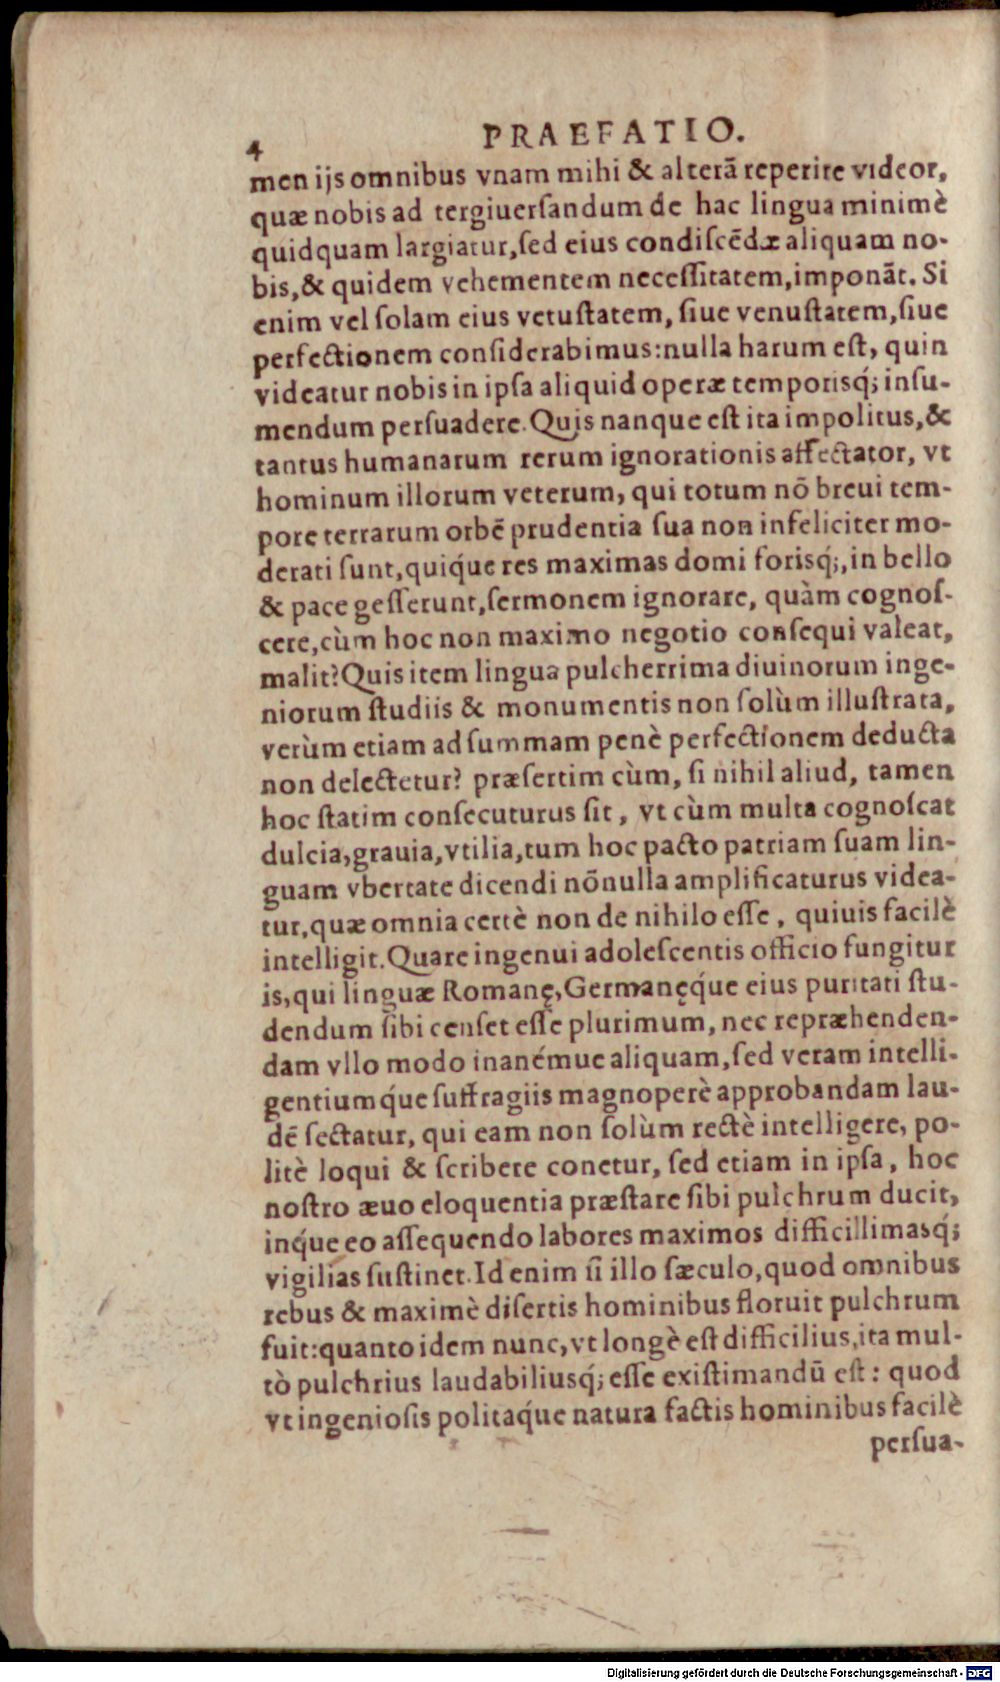 4
PRAEFATIO.
men ijs omnibus vnam mihi & alterã reperire videor,
quæ nobis ad tergiuerſandum de hac lingua minimè
quidquam largiatur, ſed eius condiſcẽdæ aliquam no-
bis, & quidem vehementem neceſſitatem, imponãt. Si
enim vel ſolam eius vetuſtatem, ſiue venuſtatem, ſiue
perfectionem conſiderabimus: nulla harum eſt, quin
videatur nobis in ipſa aliquid operæ temporisq́; inſu-
mendum perſuadere. Quis nanque eſt ita impolitus, &
tantus humanarum rerum ignorationis affectator, vt
hominum illorum veterum, qui totum nõ breui tem-
pore terrarum orbẽ prudentia ſua non infeliciter mo-
derati ſunt, quiq́ue res maximas domi forisq́;, in bello
& pace geſſerunt, ſermonem ignorare, quàm cognoſ-
cere, cùm hoc non maximo negotio conſequi valeat,
malit? Quis item lingua pulcherrima diuinorum inge-
niorum ſtudiis & monumentis non ſolùm illuſtrata,
verùm etiam ad ſummam penè perfectionem deducta
non delectetur? præſertim cùm, ſi nihil aliud, tamen
hoc ſtatim conſecuturus ſit, vt cùm multa cognoſcat
dulcia, grauia, vtilia, tum hoc pacto patriam ſuam lin-
guam vbertate dicendi nõnulla amplificaturus videa-
tur, quæ omnia certè non de nihilo eſſe, quiuis facilè
intelligit. Quare ingenui adoleſcentis officio fungitur
is, qui linguæ Romanę, Germanęq́ue eius puritati ſtu-
dendum ſibi cenſet eſſe plurimum, nec repræhenden-
dam vllo modo inanémue aliquam, ſed veram intelli-
gentiumq́ue ſuffragiis magnoperè approbandam lau-
dẽ ſectatur, qui eam non ſolùm rectè intelligere, po-
litè loqui & ſcribere conetur, ſed etiam in ipſa, hoc
noſtro æuo eloquentia præſtare ſibi pulchrum ducit,
inq́ue eo aſſequendo labores maximos difficillimasq́;
vigilias ſuſtinet. Id enim ſi illo ſæculo, quod omnibus
rebus & maximè diſertis hominibus floruit pulchrum
fuit: quanto idem nunc, vt longè eſt difficilius, ita mul-
tò pulchrius laudabiliusq́; eſſe exiſtimandũ eſt: quod
vt ingenioſis politaq́ue natura factis hominibus facilè
perſua-
Digitalisierung gefördert durch die Deutsche Forschungsgemeinschaft - DFG